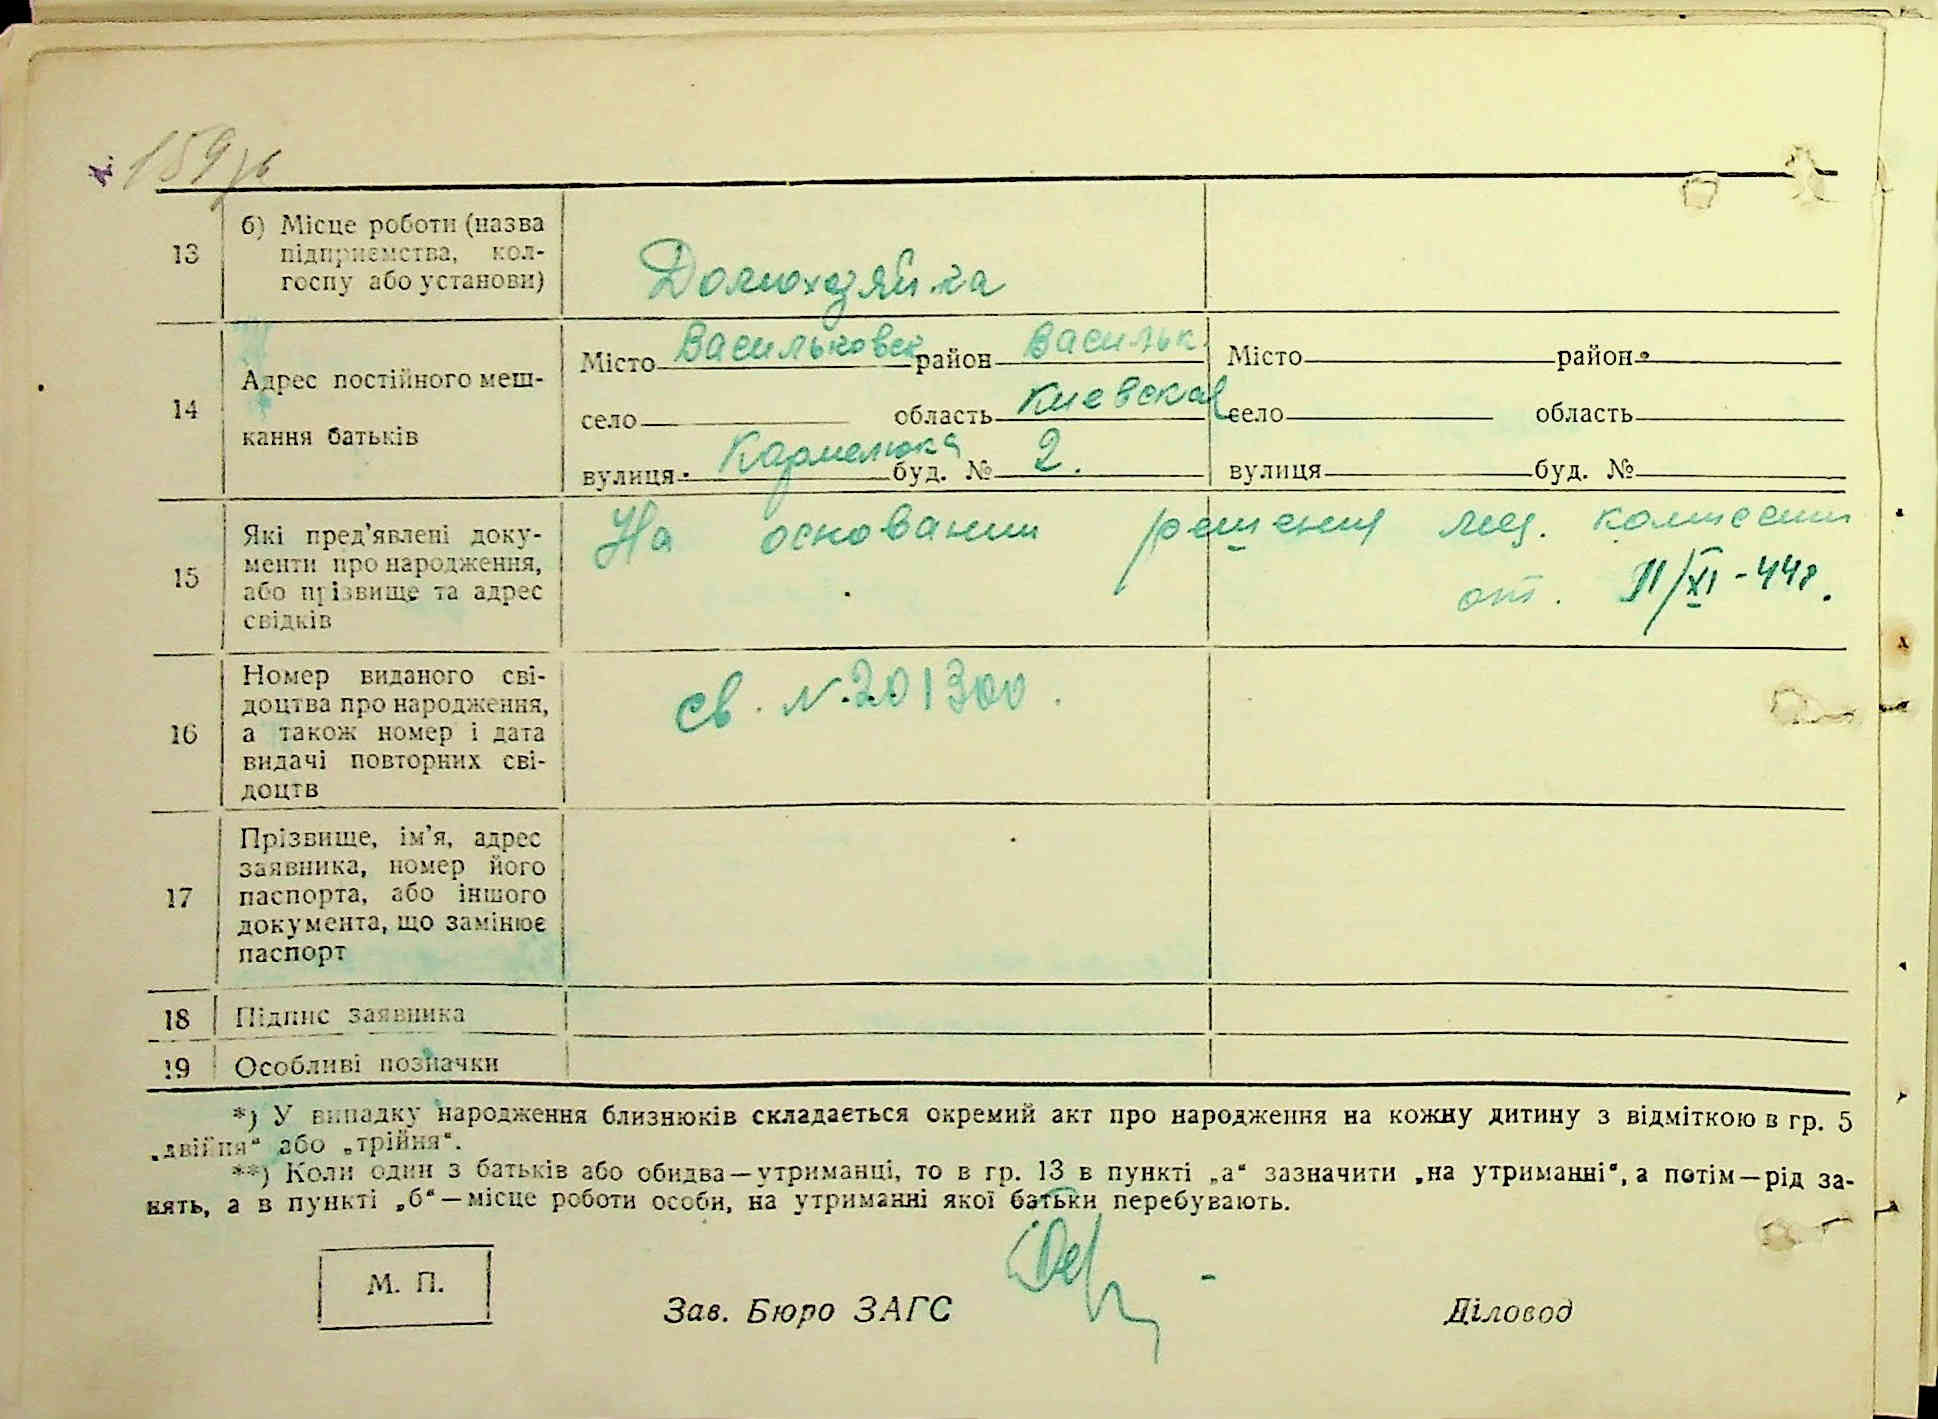 159
13
б) Місце роботи (назва
підприємства, кол-
госпу або установи)
Домохозяйка
14
Адрес постійного меш-
кання батьків
Місто Васильковск район Васильк.
село область Киевская
вулиця Кармелюка буд. № 2.
Місто район
село область
вулиця буд. №
15
Які пред'явлені доку-
менти про народження,
або прізвище та адрес
свідків
На основании решения мед. комиссии
от. 11/XI-44г.
16
Номер виданого сві-
доцтва про народження,
а також номер і дата
видачі повторних сві-
доцтв
св. N. 201300.
17
Прізвище, ім'я, адрес
заявника, номер його
паспорта, або іншого
документа, що замінює
паспорт
18
Підпис заявника
19
Особливі позначки
*) У випадку народження близнюків складається окремий акт про народження на кожну дитину з відміткою в гр. 5
„двійня“ або „трійня“.
**) Коли один з батьків або обидва—утриманці, то в гр. 13 в пункті „а“ зазначити „на утриманні“, а потім—рід за-
нять, а в пункті „б“—місце роботи особи, на утриманні якої батьки перебувають.
М. П.
Зав. Бюро ЗАГС
Діловод